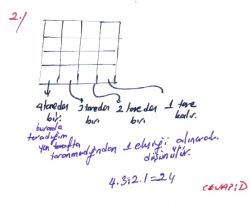 2./
4 taneden 3 taneden 2 taneden 1 tane
bir. bir. bir. kalır.
burada
taradığım
yan tarafta
taranmadığından 1 eksiği alınarak
düşünülür.
4.3.2.1=24
CEVAP: D